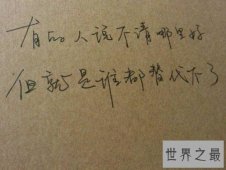 有的人说不清哪里好
但就是谁都替代不了
世界之最